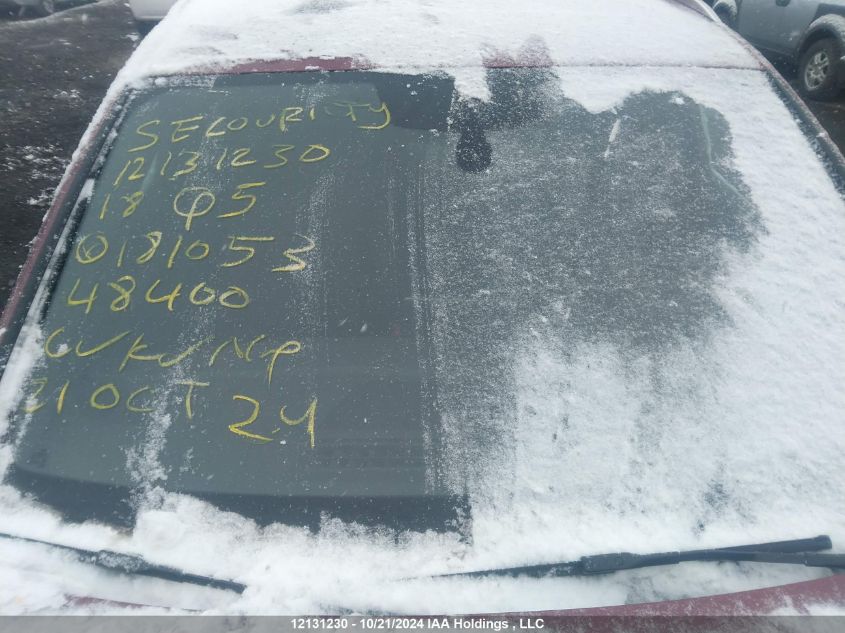 SECOURITY
12131230
18 Q5
0181053
48400
W/K/NP
21 OCT 24
12131230 - 10/21/2024 IAA Holdings , LLC